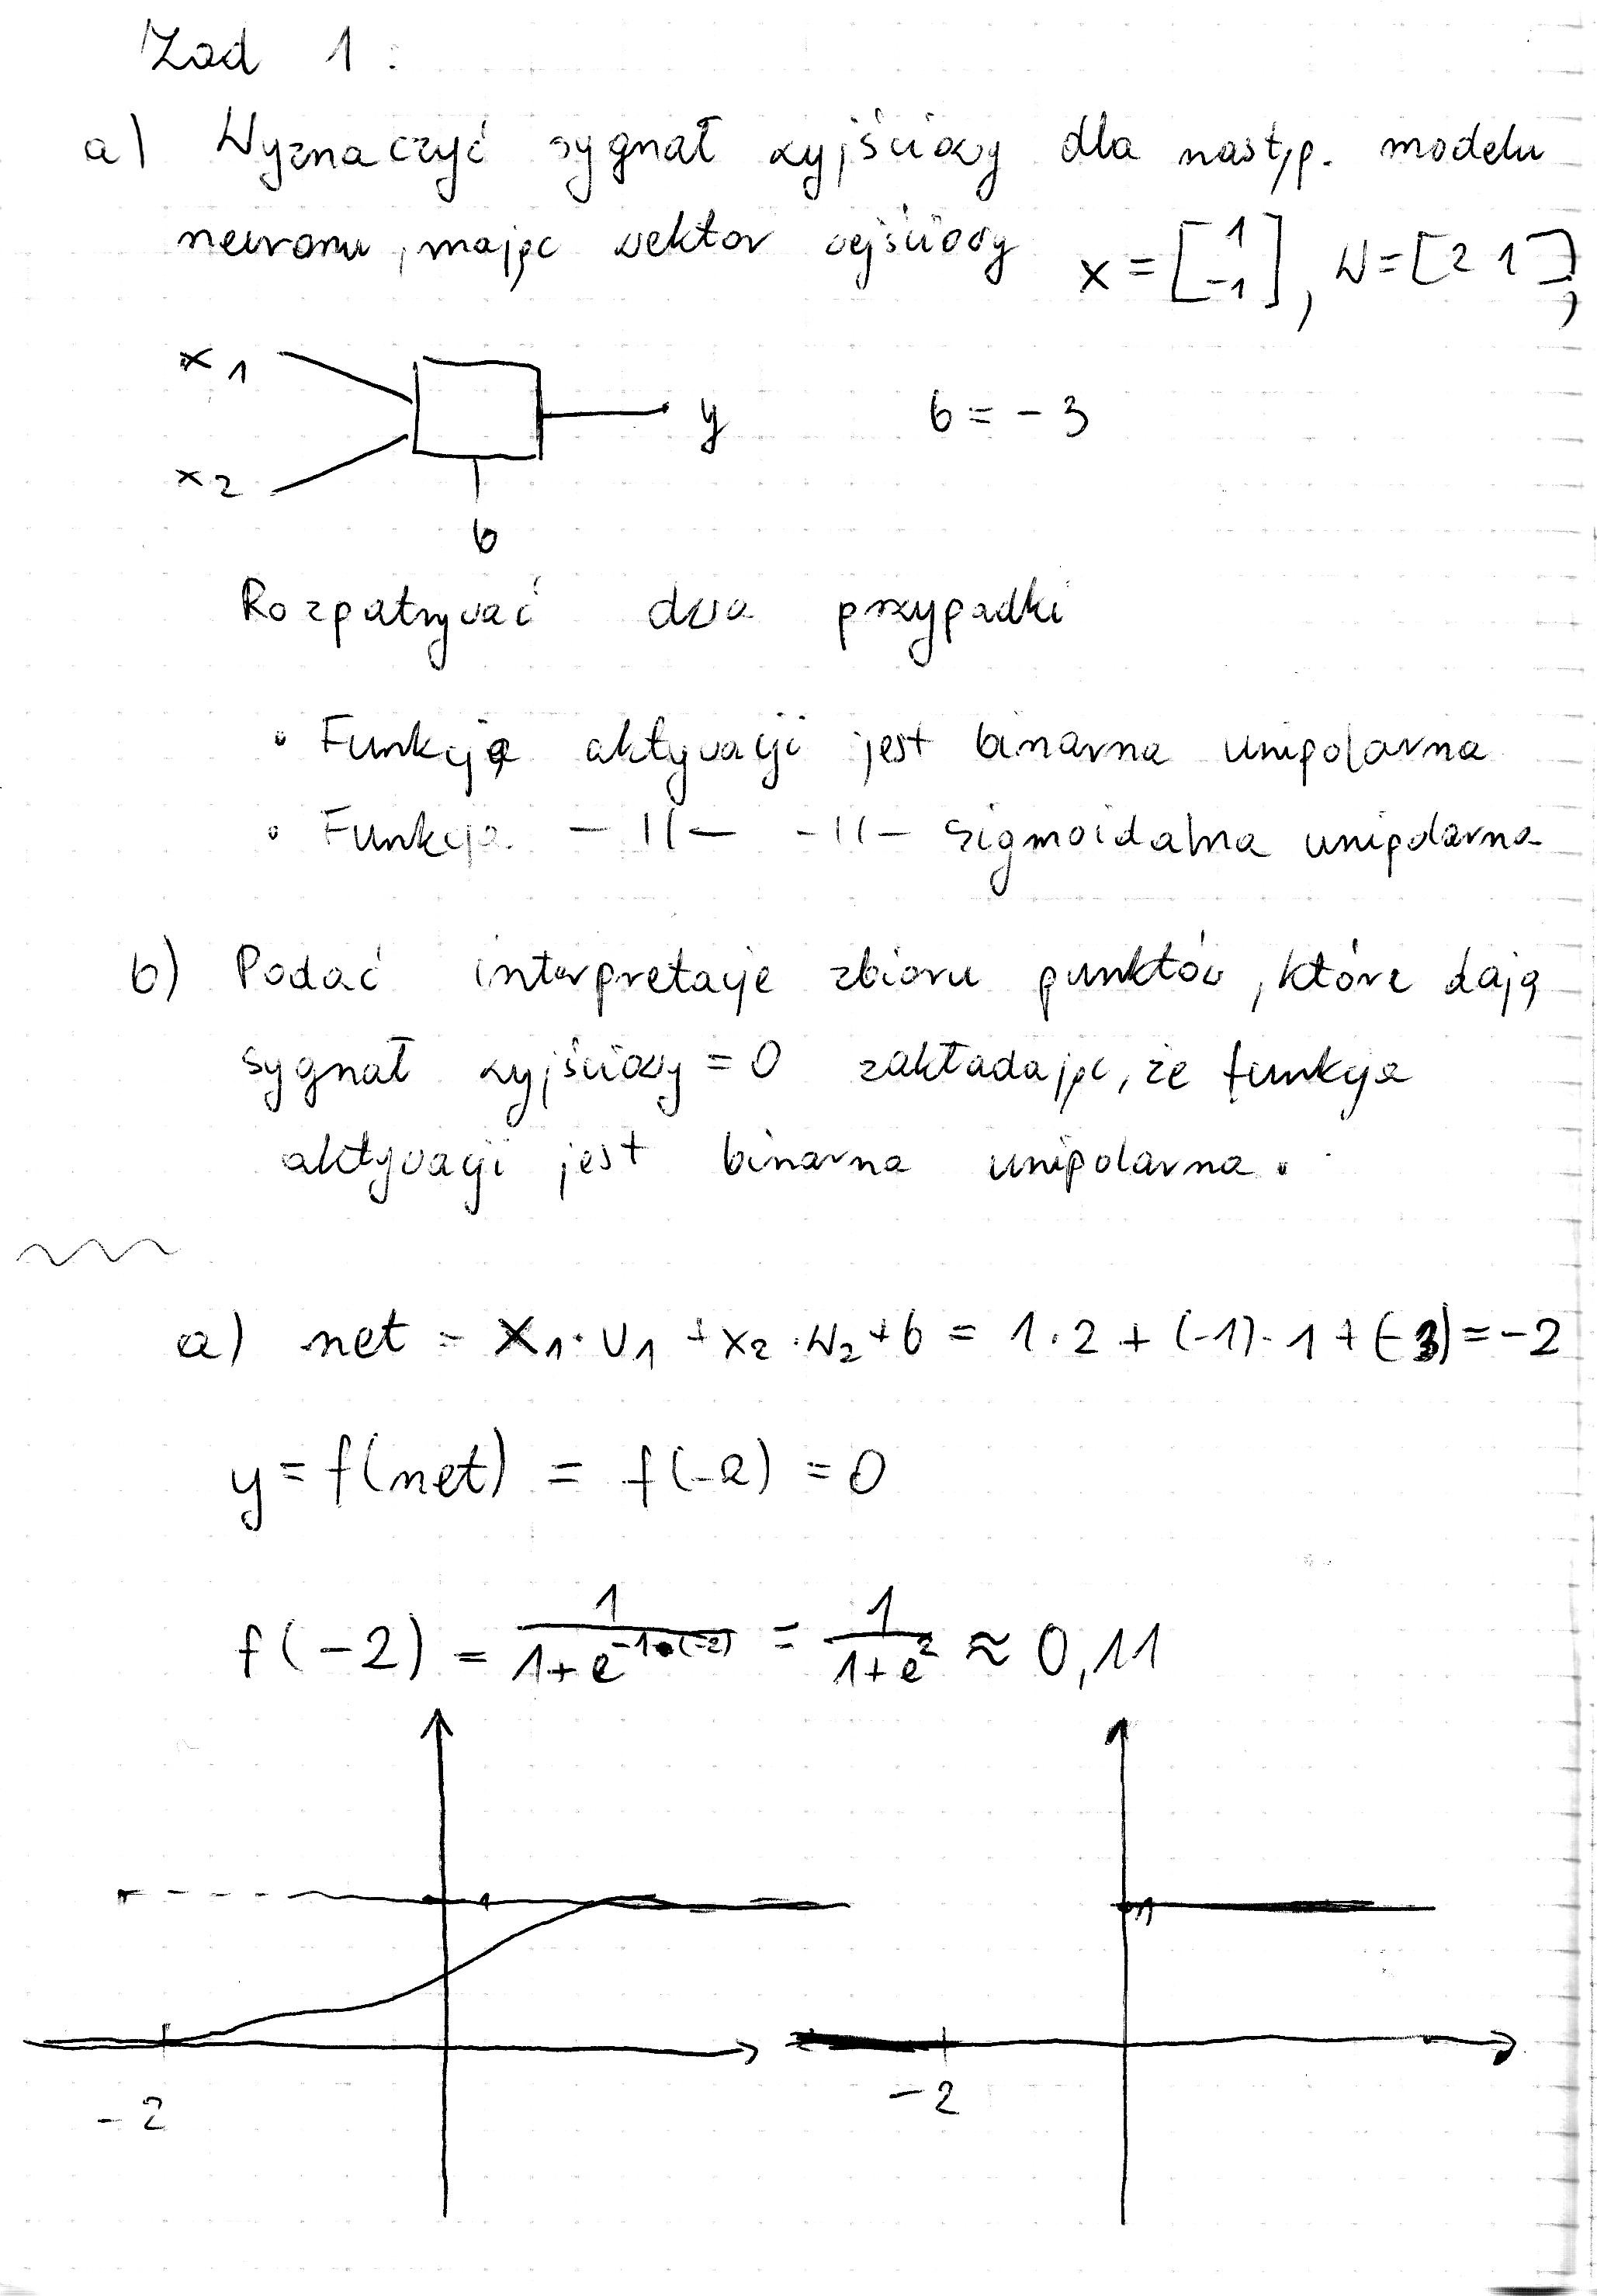 Zad 1:
a) Wyznaczyć sygnał wyjściowy dla następ. modelu
neuronu, mając wektor wejściowy x = [1 -1], W = [2 1],
x1
x2
y
b
b = -3
Rozpatrywać dwa przypadki
• Funkcja aktywacji jest binarna unipolarna
• Funkcja -||- -||- sigmoidalna unipolarna
b) Podać interpretację zbioru punktów, które dają
sygnał wyjściowy = 0 zakładając, że funkcja
aktywacji jest binarna unipolarna.
a) net = x1 · w1 + x2 · w2 + b = 1·2 + (-1)·1 + (-3) = -2
y = f(net) = f(-2) = 0
f(-2) = 1/(1+e^(-1·(-2))) = 1/(1+e^2) ≈ 0,11
1
-2
1
-2